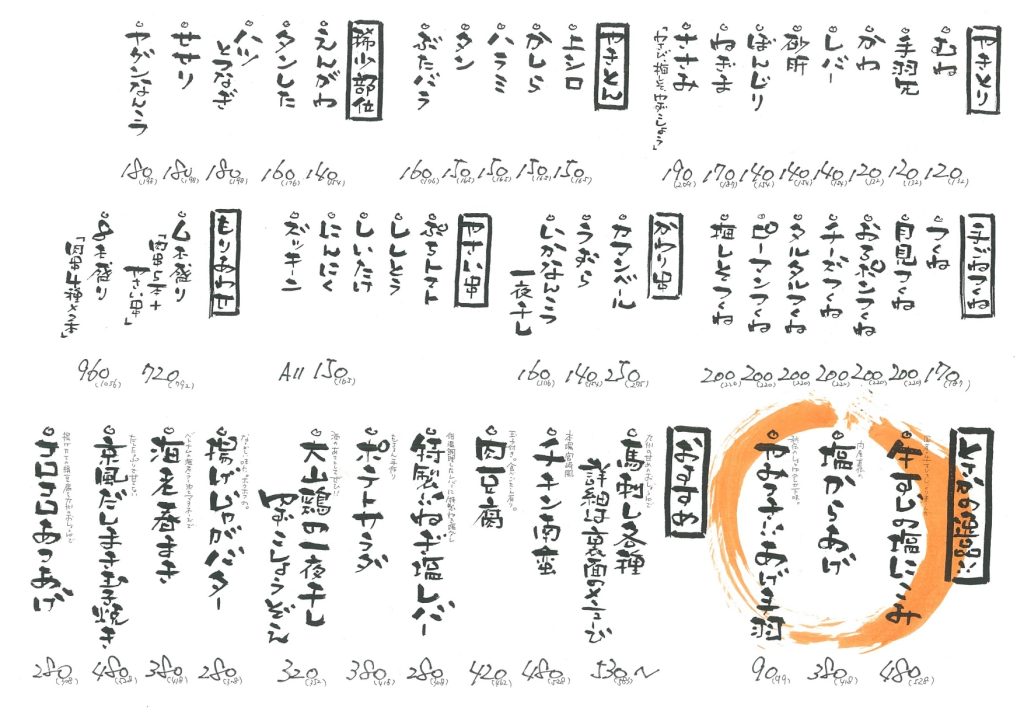 やきとり
むね 120(132)
手羽先 120(132)
かわ 120(132)
レバー 140(154)
砂肝 140(154)
ぼんじり 140(154)
ねぎま 170(187)
ささみ 190(209)
「わさび、梅しそ、ゆずこしょう」
やきとん
上シロ 150(165)
かしら 150(165)
ハラミ 150(165)
タン 150(165)
ぶたバラ 160(176)
稀少部位
えんがわ 140(154)
タンした 160(176)
ハツ
とつなぎ 180(198)
せせり 180(198)
ヤゲンなんこつ 180(198)
手ごねつくね
つくね 170(187)
月見つくね 200(220)
おろポンつくね 200(220)
チーズつくね 200(220)
タルタルつくね 200(220)
ピーマンつくね 200(220)
梅しそつくね 200(220)
かわり串
カマンベール 250(275)
うずら 140(154)
いかなんこつ
一夜干し 160(176)
やさい串
ぷちトマト
ししとう
しいたけ
にんにく
ズッキーニ
All 150(165)
もりあわせ
6本盛り
「肉串5本+
やさい串」 720(792)
8本盛り
「肉串4種×2本」 960(1056)
とりこの名物!!
牛すじの塩にこみ 480(528)
塩からあげ 380(418)
やみつき!!あげ手羽 90(99)
おすすめ
馬刺し各種
詳細は裏面のメニューで 530(583)~
チキン南蛮 480(528)
肉豆腐 420(462)
特製!!ねぎ塩レバー 280(308)
ポテトサラダ 380(418)
大山鶏の一夜干し
ゆずこしょうぞえ 320(352)
揚げじゃがバター 280(308)
海老春まき 380(418)
京風だしまき玉子焼き 480(528)
コロコロあつあげ 280(308)